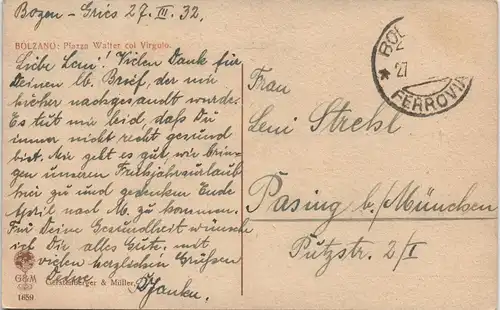 Bozen - Gries 27. III. 32.
BOLZANO: Piazza Walter col Virgolo.
Liebe Leni! Vielen Dank für
Deinen lb. Brief, der mir
hieher nachgesandt wurde.
Es tut mir leid, daß Du
immer nicht recht gesund
bist. Mir geht es gut, wir brin-
gen unseren Frühjahrsurlaub
hier zu und gedenken Ende
April nach M. zu kommen.
Für Deine Gesundheit wünsche
ich Dir alles Gute, mit
vielen herzlichen Grüßen
Deine
G&M
Gerstenberger & Müller,
1659
BO
27
FERROVIA
Frau
Leni Strehl
Pasing b./München
Putzstr. 2/I